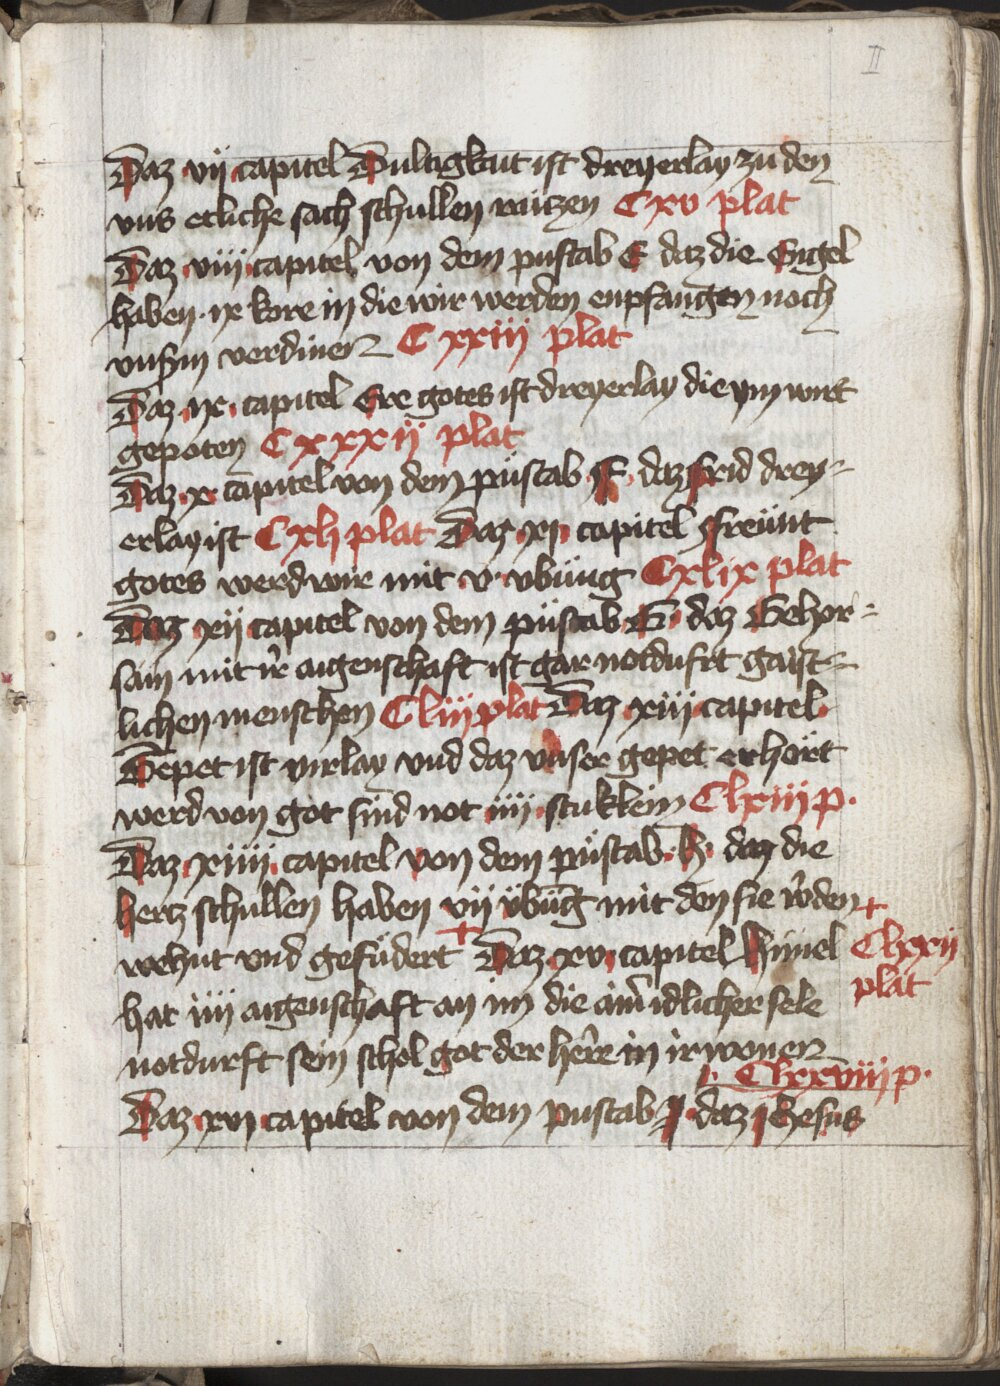 II
Daz vij capitel Dultigkait ist dreyerlay zu den
vns etliche sach schullen raiczen Cxv plat
Daz viij capitel von dem pustab E daz die Engel
haben ix kore in die wir werden enpfangen noch
vnserm verdinen Cxxiij plat
Daz ix capitel Ere gotes ist dreyerlay die ym wirt
gepoten Cxxxij plat
Daz x capitel von dem pustab F daz frid drey-
erlay ist Cxlj plat Daz xj capitel Freünt
gotes werd wir mit v vbüng Cxlix plat
Daz xij capitel von dem püstab G daz Gehor-
sam mit ir aigenschaft ist gar notdufrt gaist-
lichen menschen Cliij plat Daz xiij capitel
Gepet ist virlay vnd daz vnser gepet erhört
werd von got sind not iiij stuklein Clxiij p.
Daz xiiij capitel von dem püstab h daz die
hertz schullen haben vij vbüng mit den sie werden +
wehut vnd gefudert + Daz xv capitel himel Clxxij
plat
hat iiij aigenschaft an im die idlicher sele
notdurft sein schol got der herre in ir wonen
Clxxviiij p.
Daz xvj capitel von dem pustab J daz Jhesus